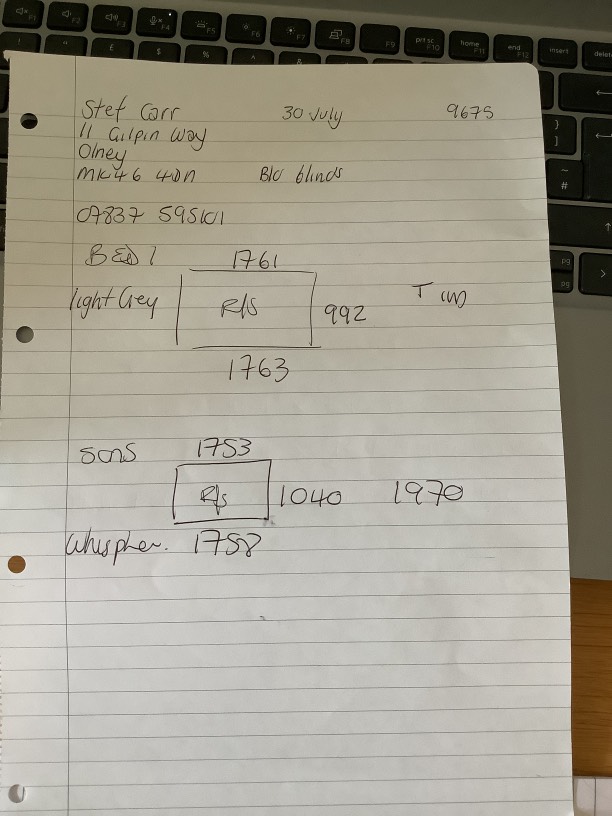 Stef Carr 30 July 9675
11 Gilpin Way
Olney
MK46 4DN B/O blinds
07837 595101
BED 1 1761
light Grey R/S 992
1763
sons 1753
R/s 1040 1970
Whispher. 1758
prt sc
F10
home
F11
end
F12
insert
delete
F2
F3
F4
F5
F6
F7
F8
F9
pg
pg